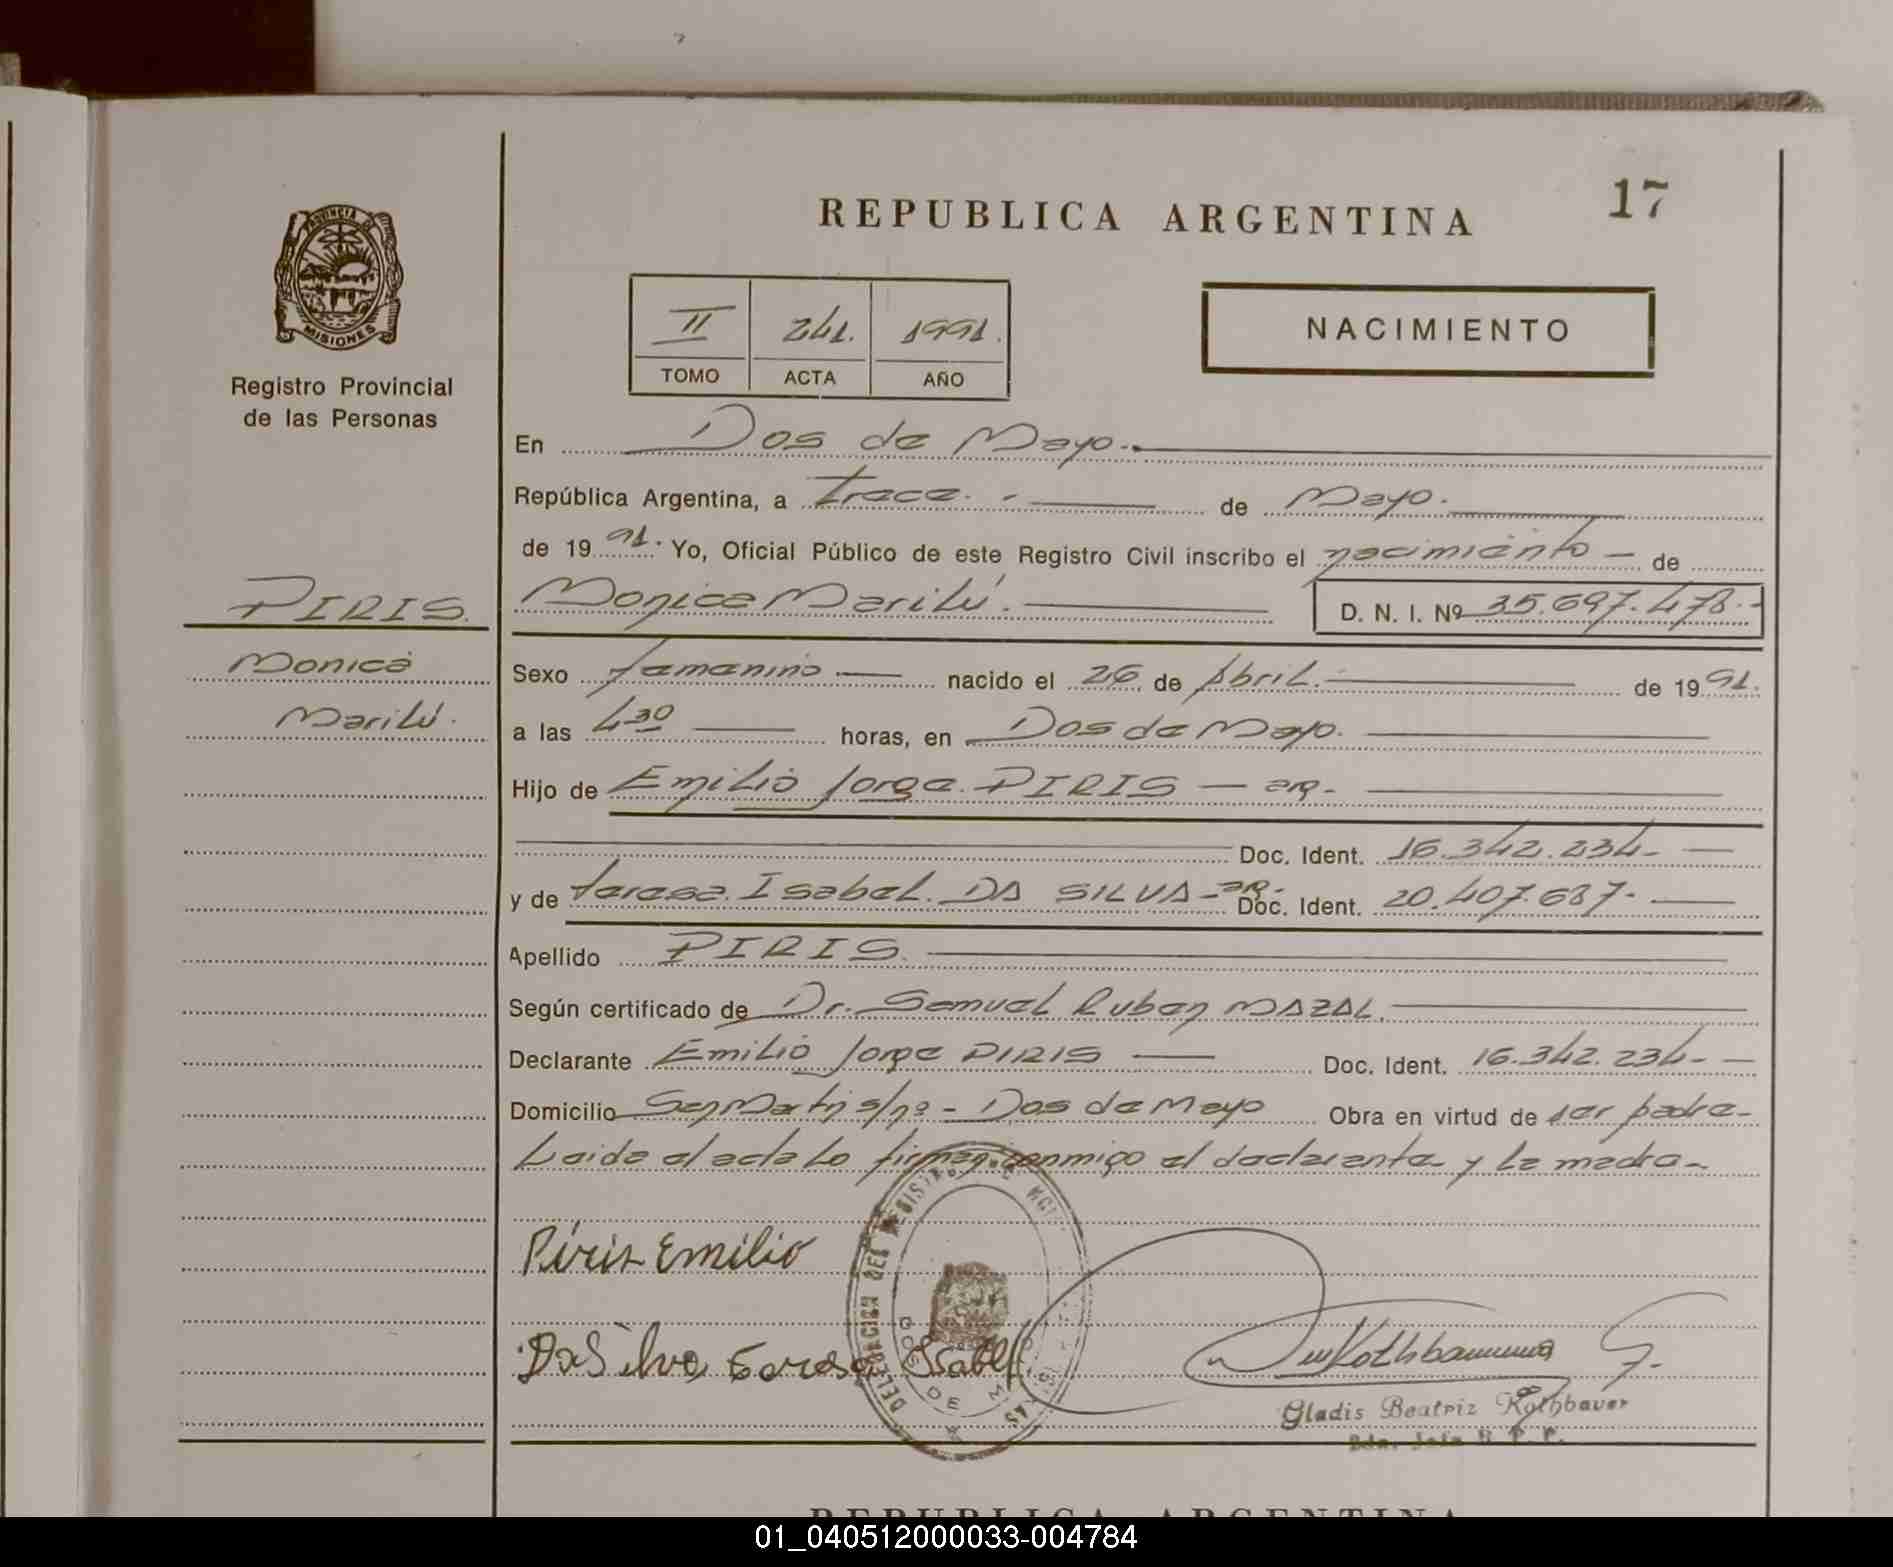 17
REPUBLICA ARGENTINA
PROVINCIA DE
MISIONES
Registro Provincial
de las Personas
II 241. 1991.
TOMO ACTA AÑO
NACIMIENTO
En Dos de Mayo.
República Argentina, a trece. de Mayo.
de 19 91. Yo, Oficial Público de este Registro Civil inscribo el nacimiento de
PIRIS.
Monica Marilú. D. N. I. Nº 35.697.478.-
Monica
Marilú.
Sexo femenino nacido el 26 de Abril. de 19 91.
a las 4 30 horas, en Dos de Mayo.
Hijo de Emilio Jorge PIRIS — ar.
Doc. Ident. 16.342.234-
y de teresa Isabel. DA SILVA - ar. Doc. Ident. 20.407.687-
Apellido PIRIS.
Según certificado de Dr. Samuel Ruben MAZAL.
Declarante Emilio Jorge PIRIS Doc. Ident. 16.342.234-
Domicilio San Martin s/nº - Dos de Mayo Obra en virtud de ser padre-
Leida el acta lo firman conmigo el declarante y la madre-
Piris Emilio
DELEGACION DEL REGISTRO
DOS DE M
Da Silva teresa Isabel
Kothbauer G.
Gladis Beatriz Kothbauer
R. P. P.
REPUBLICA ARGENTINA
01_040512000033-004784